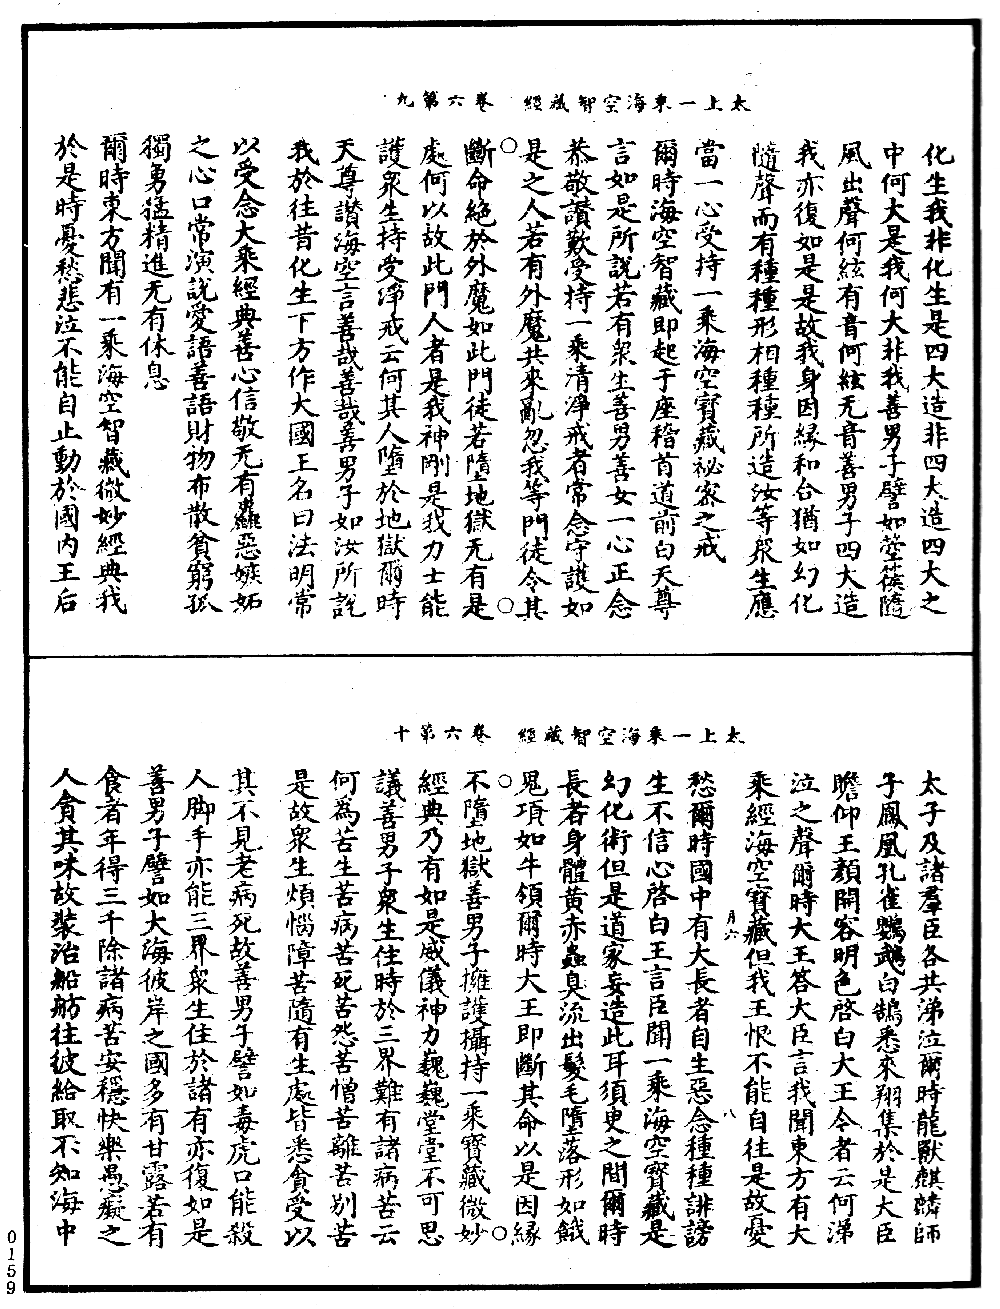 太上一乘海空智藏經　卷六第九
化生我非化生是四大造非四大造四大之
中何大是我何大非我善男子譬如箜篌隨
風出聲何絃有音何絃无音善男子四大造
我亦復如是是故我身因緣和合猶如幻化
隨聲而有種種形相種種所造汝等衆生應
當一心受持一乘海空寶藏祕密之戒
爾時海空智藏即起于座稽首道前白天尊
言如是所說若有衆生善男善女一心正念
恭敬讚歎受持一乘清淨戒者常念守護如
是之人若有外魔共來亂忽我等門徒令其
斷命絕於外魔如此門徒若墮地獄无有是
處何以故此門人者是我神剛是我力士能
護衆生持受淨戒云何其人墮於地獄爾時
天尊讚海空言善哉善哉善男子如汝所說
我於往昔化生下方作大國王名曰法明常
以受念大乘經典善心信敬无有麤惡嫉妬
之心口常演說愛語善語財物布散貧窮孤
獨勇猛精進无有休息
爾時東方聞有一乘海空智藏微妙經典我
於是時憂愁悲泣不能自止動於國內王后
太上一乘海空智藏經　卷六第十
太子及諸羣臣各共涕泣爾時龍獸麒麟師
子鳳凰孔雀鸚鵡白鵠悉來翔集於是大臣
瞻仰王顏開容明色啓白大王今者云何涕
泣之聲爾時大王答大臣言我聞東方有大
乘經海空寶藏但我王恨不能自往是故憂
愁爾時國中有大長者自生惡念種種誹謗
月六　八
生不信心啓白王言臣聞一乘海空寶藏是
幻化術但是道家妄造此耳須臾之間爾時
長者身體黃赤蟲臭流出髮毛墮落形如餓
鬼項如牛領爾時大王即斷其命以是因緣
不墮地獄善男子擁護攝持一乘寶藏微妙
經典乃有如是威儀神力巍巍堂堂不可思
議善男子衆生住時於三界難有諸病苦云
何為苦生苦病苦死苦怨苦憎苦離苦別苦
是故衆生煩惱障苦隨有生處皆悉貪受以
其不見老病死故善男子譬如毒虎口能殺
人脚手亦能三界衆生住於諸有亦復如是
善男子譬如大海彼岸之國多有甘露若有
食者年得三千除諸病苦安穩快樂愚癡之
人貪其味故裝治船舫往彼給取不知海中
0159